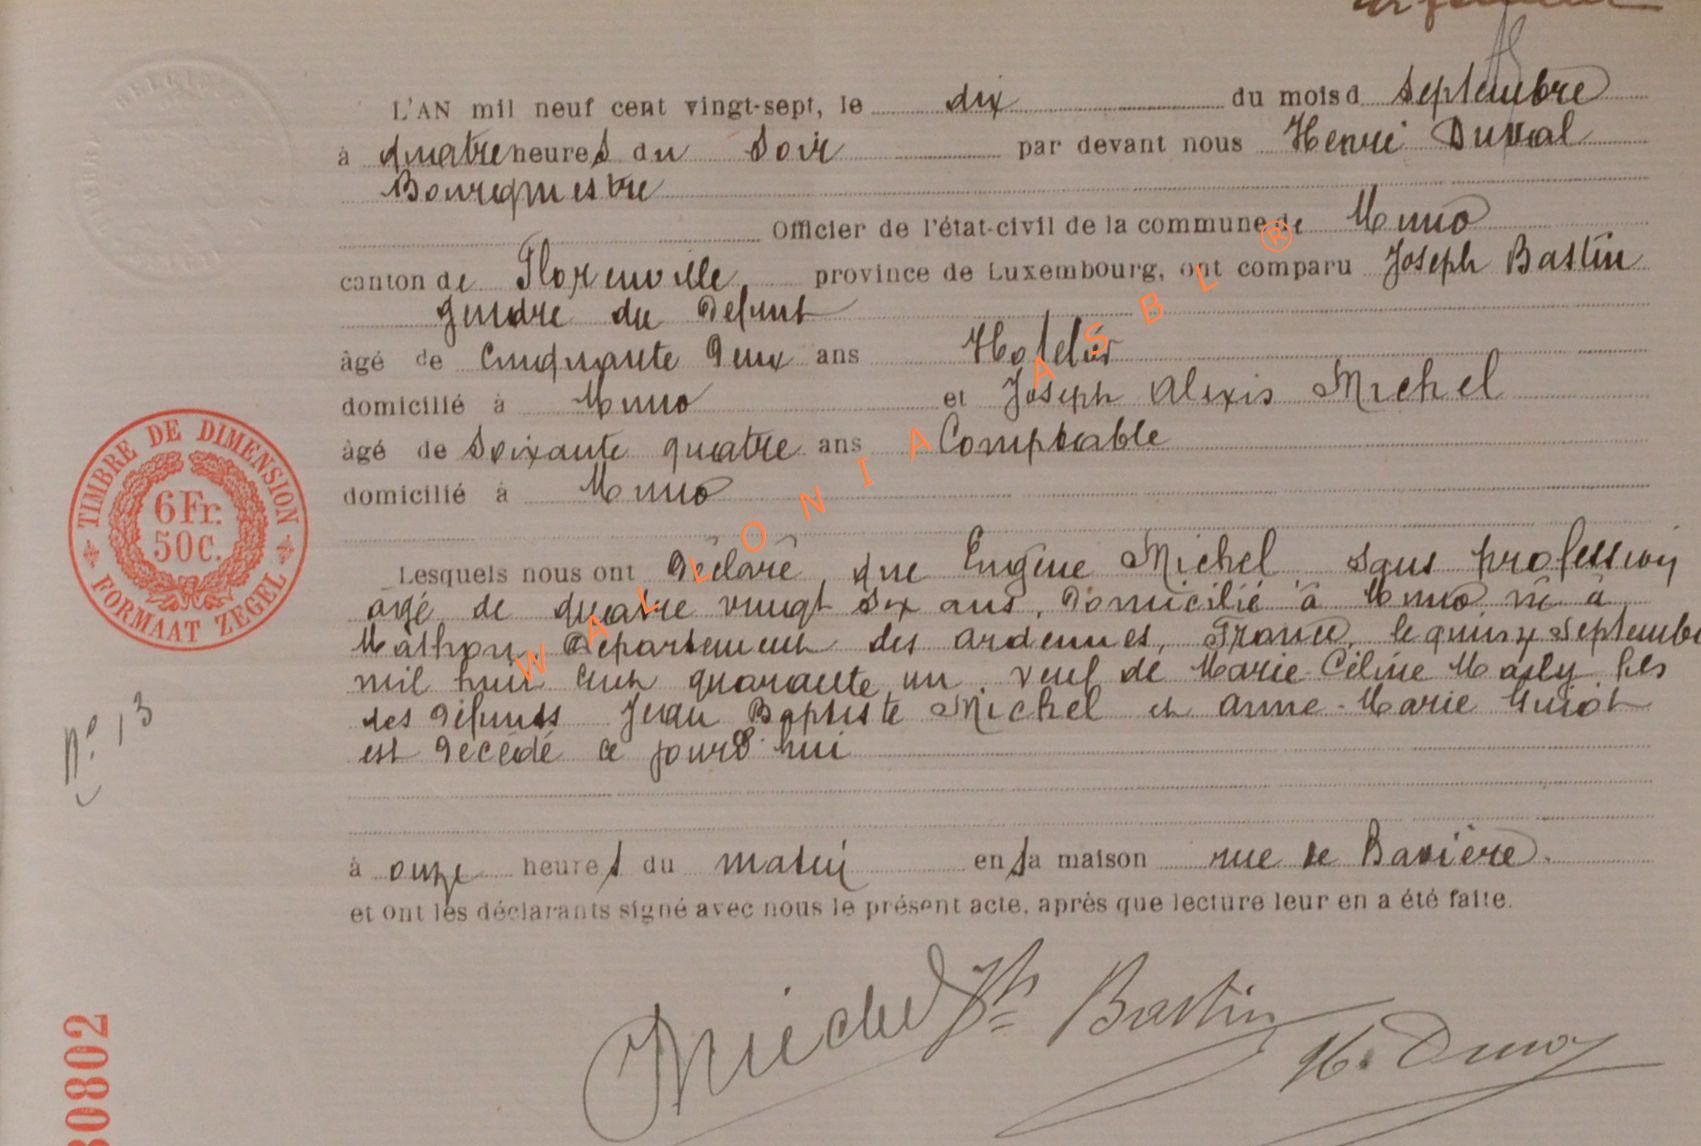 L'AN mil neuf cent vingt-sept, le dix du mois d septembre
à quatre heures du soir par devant nous Henri Duval
Bourgmestre
Officier de l'état-civil de la commune de Muno
canton de Florenville province de Luxembourg, ont comparu Joseph Bastin
gendre du défunt
âgé de cinquante deux ans Hotelier
domicilié à Muno et Joseph Alexis Michel
âgé de soixante quatre ans Comptable
domicilié à Muno
Lesquels nous ont déclaré que Eugène Michel sans profession
âgé de quatre vingt six ans, domicilié à Muno né à
Mathon, Département des ardennes, France, le quinze septembre
mil huit cent quarante un, veuf de Marie-Céline fils
des défunts Jean Baptiste Michel et anne-Marie Guiot
est décédé ce jourd'hui
à onze heures du matin en sa maison rue de Bavière.
et ont les déclarants signé avec nous le présent acte, après que lecture leur en a été faite.
Michel Jh Bastin
H. Duval
TIMBRE DE DIMENSION
6 Fr.
50 C.
FORMAAT ZEGEL
N° 13
30802
WALLONIA ASBL ®